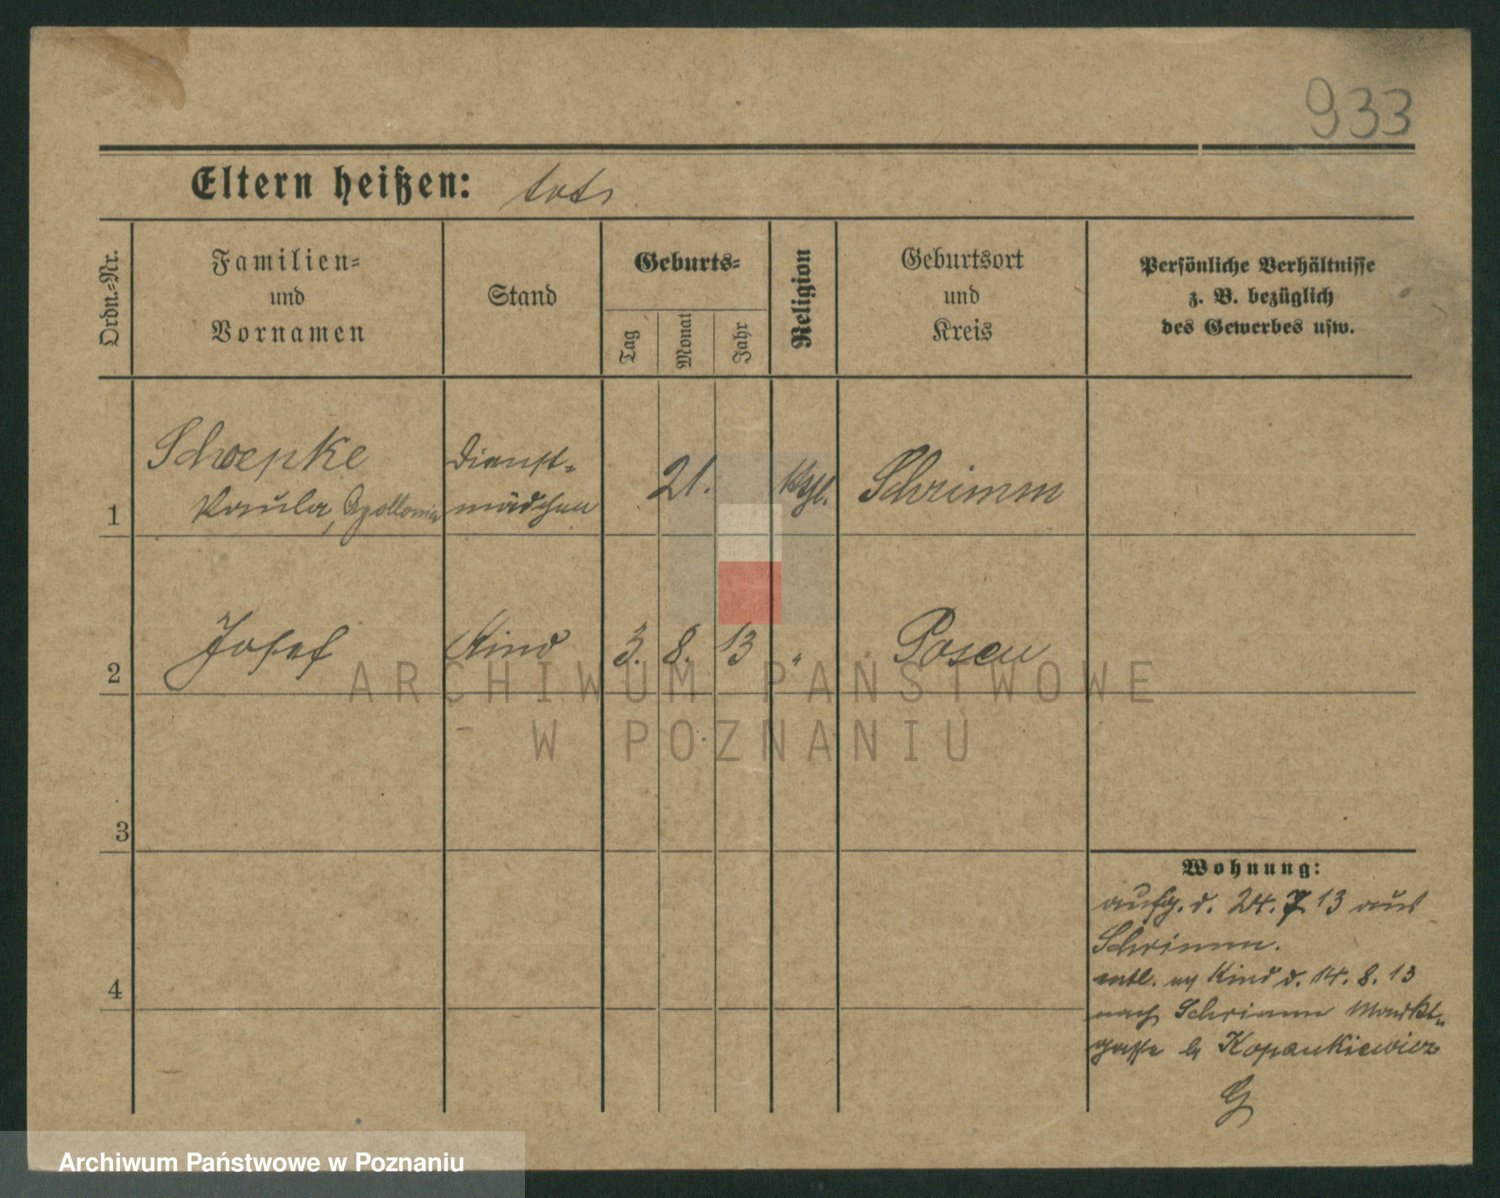 933
Eltern heißen: tot
Ordn.-Nr.
Familien-
und
Vornamen
Stand
Geburts-
Tag
Monat
Jahr
Religion
Geburtsort
und
Kreis
Persönliche Verhältnisse
z. B. bezüglich
des Gewerbes usw.
1
Schoepke
Paula, Apollonia
Dienst-
mädchen
21.
kthl.
Schrimm
2
Josef
Kind
3. 8. 13
"
Posen
3
4
Wohnung:
aufg. d. 24. 7 13 aus
Schrimm.
entl. Kind d. 14. 8. 13
nach Schrimm Markt-
gasse b Kopankiewicz
G
ARCHIWUM PAŃSTWOWE
W POZNANIU
Archiwum Państwowe w Poznaniu